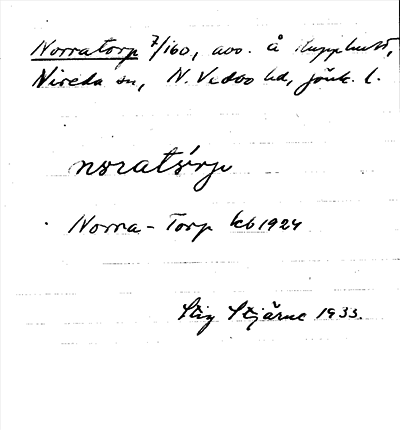 Norratorp 7/160, avs. å Rupphult,
Nireda sn, N. Vedbo hd, Jönk. l.
noratórp
Norra-Torp kb 1924
Stig Stjärne 1933.